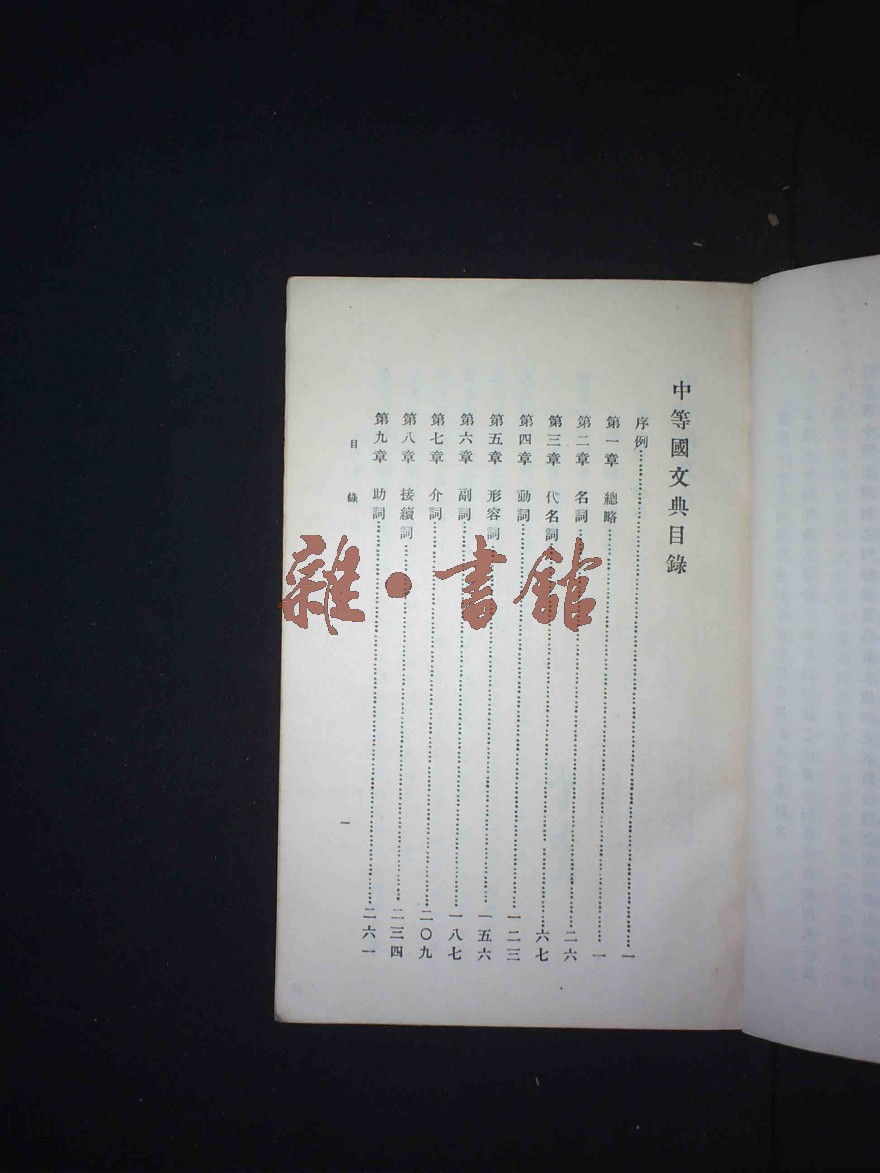 中等國文典目錄
序例……一
第一章 總略……一
第二章 名詞……二六
第三章 代名詞……六七
第四章 動詞……一二三
第五章 形容詞……一五六
第六章 副詞……一八七
第七章 介詞……二〇九
第八章 接續詞……二三四
第九章 助詞……二六一
目錄 一
雜·書館